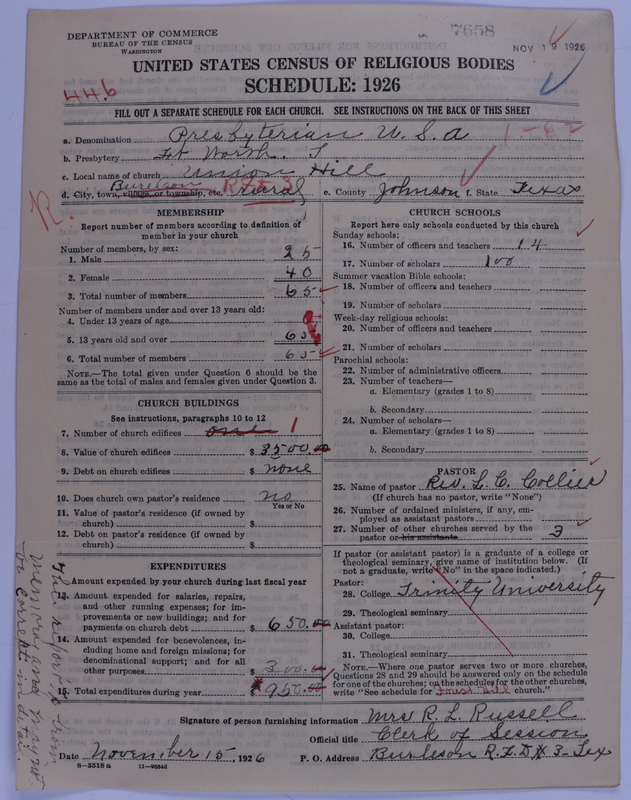 DEPARTMENT OF COMMERCE
BUREAU OF THE CENSUS
WASHINGTON
7658
NOV 19 1926
UNITED STATES CENSUS OF RELIGIOUS BODIES
SCHEDULE: 1926
446
FILL OUT A SEPARATE SCHEDULE FOR EACH CHURCH. SEE INSTRUCTIONS ON THE BACK OF THIS SHEET
a. Denomination Presbyterian U. S. a
1-62
b. Presbytery Ft Worth.
c. Local name of church Union Hill
d. City, town, village, or township, etc. Burleson R F D 3 rural e. County Johnson f. State Texas
R.
MEMBERSHIP
Report number of members according to definition of
member in your church
Number of members, by sex:
1. Male 25
2. Female 40
3. Total number of members 65
Number of members under and over 13 years old:
4. Under 13 years of age
5. 13 years old and over 65
6. Total number of members 65
NOTE.—The total given under Question 6 should be
same as the total of males and females given under Question 3.
CHURCH BUILDINGS
See instructions, paragraphs 10 to 12
7. Number of church edifices one 1
8. Value of church edifices $ 3500.00
9. Debt on church edifices $ none
10. Does church own pastor's residence no
Yes or No
11. Value of pastor's residence (if owned by
church) $
12. Debt on pastor's residence (if owned by
church) $
EXPENDITURES
Amount expended by your church during last fiscal year
13. Amount expended for salaries, repairs,
and other running expenses; for im-
provements or new buildings; and for
payments on church debt $ 650.00
14. Amount expended for benevolences, in-
cluding home and foreign missions; for
denominational support; and for all
other purposes $ 300.00
15. Total expenditures during year $ 950.00
CHURCH SCHOOLS
Report here only schools conducted by this church
Sunday schools:
16. Number of officers and teachers 14
17. Number of scholars 100
Summer vacation Bible schools:
18. Number of officers and teachers
19. Number of scholars
Week-day religious schools:
20. Number of officers and teachers
21. Number of scholars
Parochial schools:
22. Number of administrative officers
23. Number of teachers—
a. Elementary (grades 1 to 8)
b. Secondary
24. Number of scholars—
a. Elementary (grades 1 to 8)
b. Secondary
PASTOR
25. Name of pastor Rev. L. C. Collier
(If church has no pastor, write "None")
26. Number of ordained ministers, if any, em-
ployed as assistant pastors
27. Number of other churches served by the
pastor or his assistants 3
If pastor (or assistant pastor) is a graduate of a college or
theological seminary, give name of institution below. (If
not a graduate, write "No" in the space indicated.)
Pastor:
28. College Trinity University
29. Theological seminary
Assistant pastor:
30. College
31. Theological seminary
NOTE.—Where one pastor serves two or more churches,
Questions 28 and 29 should be answered only on the schedule
for one of the churches; on the schedules for the other churches,
write "See schedule for Forest Hill church."
Signature of person furnishing information Mrs R. L. Russell
Official title Clerk of Session
Date November 15, 1926 P. O. Address Burleson R. F. D # 3- Tex
S-5518 a